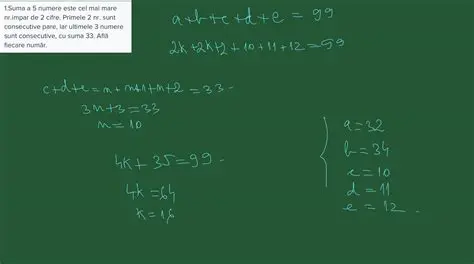 1.Suma a 5 numere este cel mai mare
nr.impar de 2 cifre. Primele 2 nr. sunt
consecutive pare, iar ultimele 3 numere
sunt consecutive, cu suma 33. Află
fiecare număr.
a+b+c+d+e=99
2k+2k+2+10+11+12=99
c+d+e=n+n+1+n+2=33
3n+3=33
n=10
4k+35=99
4k=64
k=16
a=32
b=34
c=10
d=11
e=12